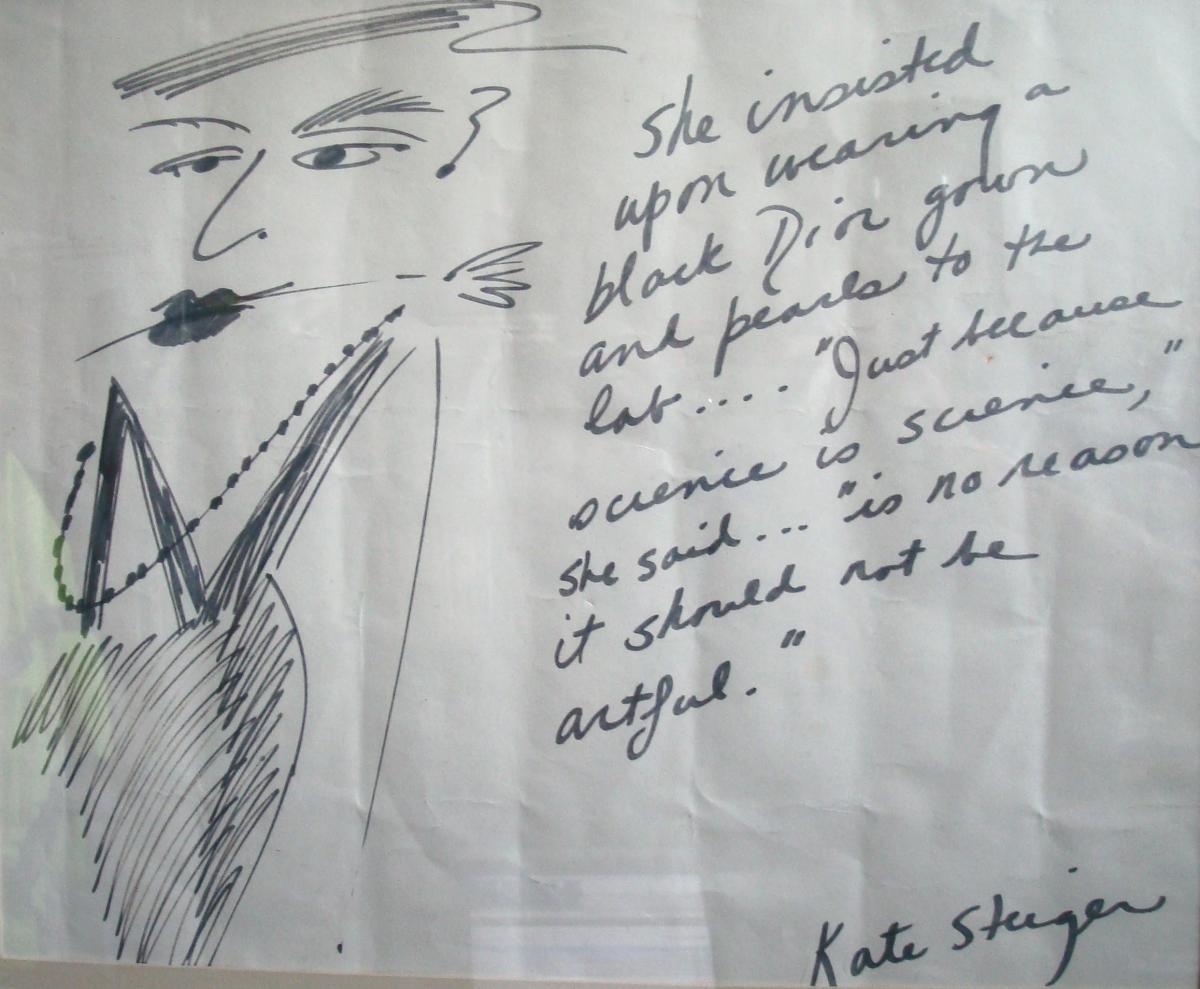 She insisted
upon wearing a
black Dior gown
and pearls to the
lab.... "Just because
science is science,"
she said... "is no reason
it should not be
artful."
Kate Steiger